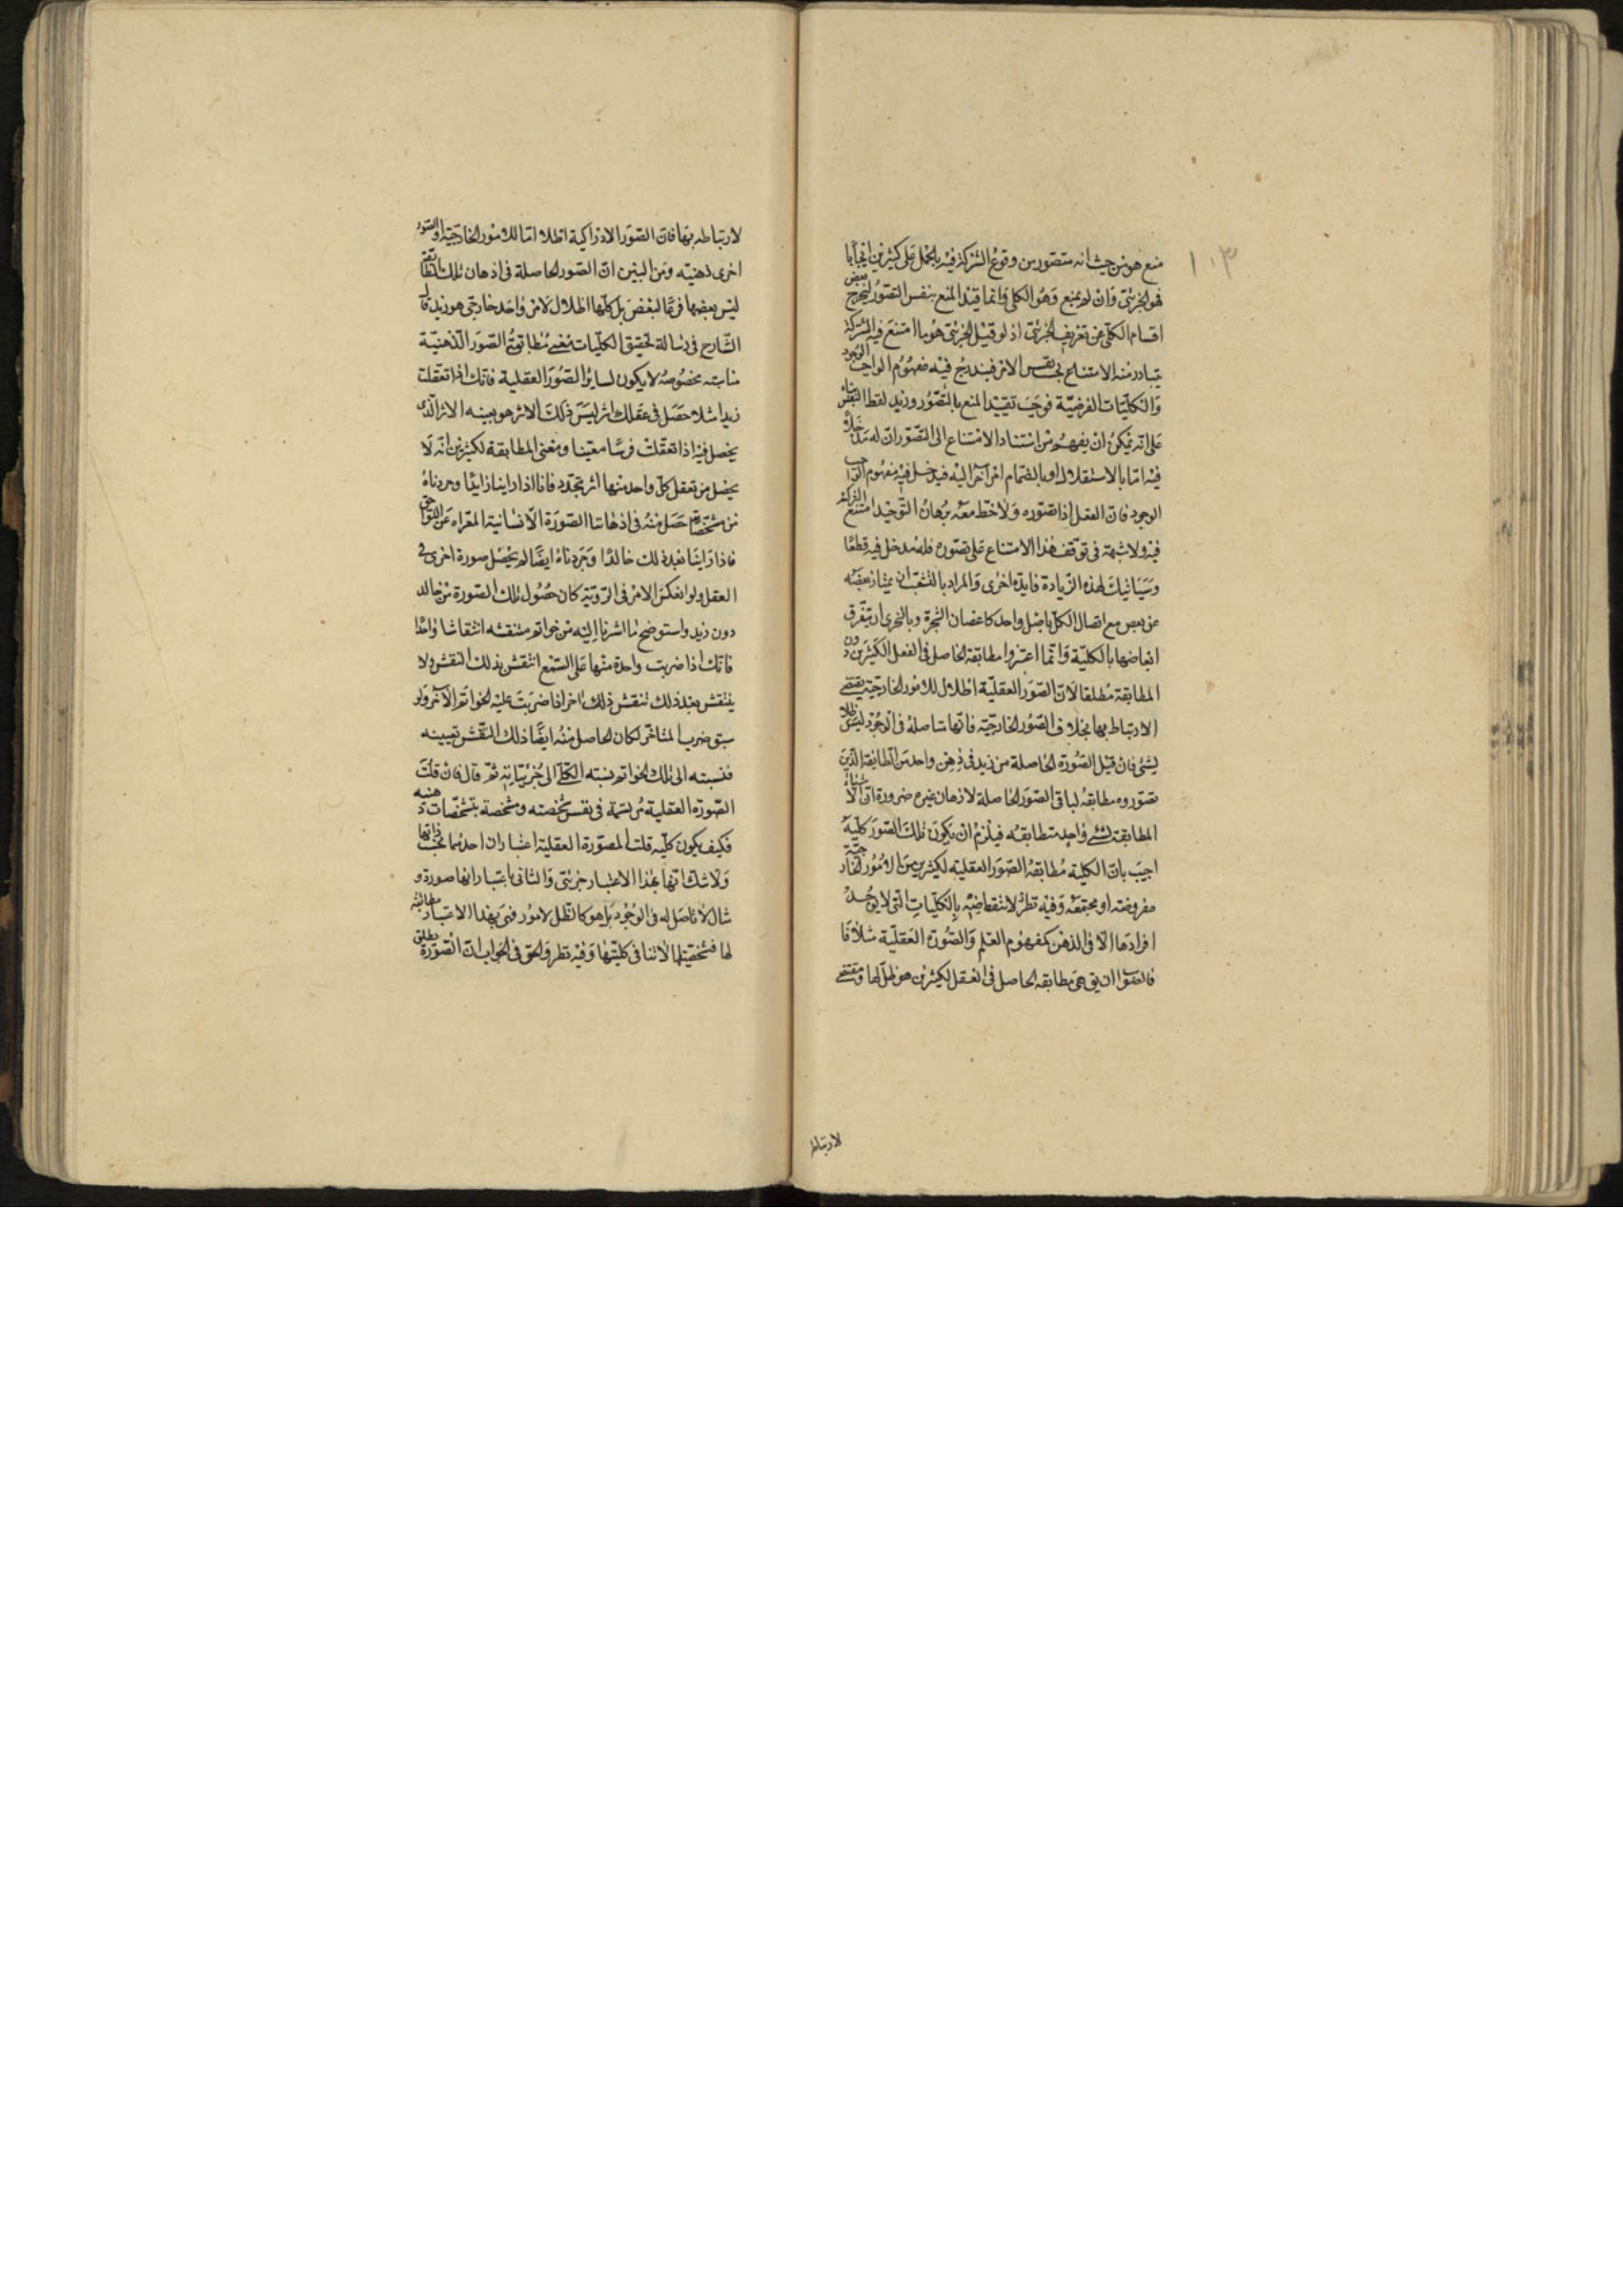 ١٠٣
منع هو من حيث انه متصور من وقوع الشركة فيه بالحمل على كثيرين ايجابا
فهو الجزئي وان لم يمنع وهو الكلي وانما قيد المنع بنفس التصور ليخرج بعض
اقسام الكلي عن تعريف الجزئي اذ لو قيل الجزئي هو ما امتنع فيه الشركة
يتبادر منه الامتناع بحسب نفس الامر فيندرج فيه مفهوم الواجب الوجود
والكليات الفرضية فوجب تقييد المنع بالتصور وزيد لفظ النفس بناء
على انه يمكن ان يفهم من استناد الامتناع الى التصور ان له مدخلا
فيه اما بالاستقلال او بانضمام امر آخر اليه فيدخل فيه مفهوم الواجب
الوجود فان العقل اذا تصوره ولاحظ معه برهان التوحيد امتنع الشركة
فيه ولا شبهة في توقف هذا الامتناع على تصوره فله مدخل فيه قطعا
وسياتيك لهذه الزيادة فايدة اخرى والمراد بالتشعب ان يمتاز بعضه
عن بعض مع اتصال الكل باصل واحد كاغصان الشجرة وبالتجزي ان يتفرق
ابعاضها بالكلية وانما اعتبروا مطابقة الحاصل في العقل الكثيرين دون
المطابقة مطلقا لان الصور العقلية اظلال للامور الخارجية يقتضي
الارتباط بها بخلاف الصور الخارجية فانها متاصلة في الوجود ليس ظلا
لشئ فان قيل الصورة الحاصلة من زيد في ذهن واحد من الطايفة الذين
تصوروه مطابقة لباقي الصور الحاصلة لاذهان غيره ضرورة ان الاشياء
المطابقة لشئ واحد متطابقة فيلزم ان يكون تلك الصور كلية
اجيب بان الكلية مطابقة الصور العقلية لكثيرين من الامور الخارجية
مفروضة او مجتمعة وفيه نظر لانتقاضه بالكليات التي لا يوجد
افرادها الا في الذهن كمفهوم العلم والصورة العقلية مثلا
فالصواب ان يق هي مطابقة الحاصل في العقل لكثيرين هو ظل لها ومقتضى
لارتباط
لارتباطه بها فان الصور الادراكية اظلال اما للامور الخارجية او لصور
اخرى ذهنية ومن البين ان الصور الحاصلة في اذهان تلك الطايفة
ليس بعضها فرعا لبعض بل كلها اظلال لامر واحد خارجي هو زيد قال
الشارح في رسالة تحقيق الكليات معنى مطابقة الصور الذهنية
مناسبة مخصوصة لا يكون لساير الصور العقلية فانك اذا تعقلت
زيدا مثلا حصل في عقلك اثر ليس ذلك الاثر هو بعينه الاثر الذي
يحصل فيه اذا تعقلت فرسا معينا ومعنى المطابقة لكثيرين انه لا
يحصل من تعقل كل واحد منها اثر متجدد فانا اذا راينا زايدا وجردناه
من مشخصاته حصل منه في اذهاننا الصورة الانسانية المعراه عن اللواحق
فاذا راينا بعد ذلك خالدا وجردناه ايضا لم يحصل صورة اخرى في
العقل ولو انعكس الامر في الرؤية كان حصول تلك الصورة من خالد
دون زيد واستوضح ما اشرنا اليه من خواتم منتقشة انتقاشا واحدا
فانك اذا ضربت واحدة منها على الشمع انتقش بذلك النقش ولا
ينتقش بعد ذلك بنقش اخر اذا ضربت عليه الخواتم الآخر ولو
سبق ضرب المتاخر لكان الحاصل منه ايضا ذلك النقش بعينه
فنسبته الى تلك الخواتم نسبة الكلي الى جزئياته ثم قال فان قلت
الصورة العقلية مرتسمة في نفس شخصية ومشخصة بتشخصات ذهنية
فكيف يكون كلية قلت للصورة العقلية اعتباران احدهما بحسب ذاتها
ولا شك انها بهذا الاعتبار جزئي والثاني باعتبار انها صورة و
مثال لا تاصل له في الوجود بل هو كالظل لامور فهي بهذا الاعتبار مطابقة
لها فشخصيتها لا تنافي كليتها وفيه نظر والحق في الجواب ان الصورة تطلق